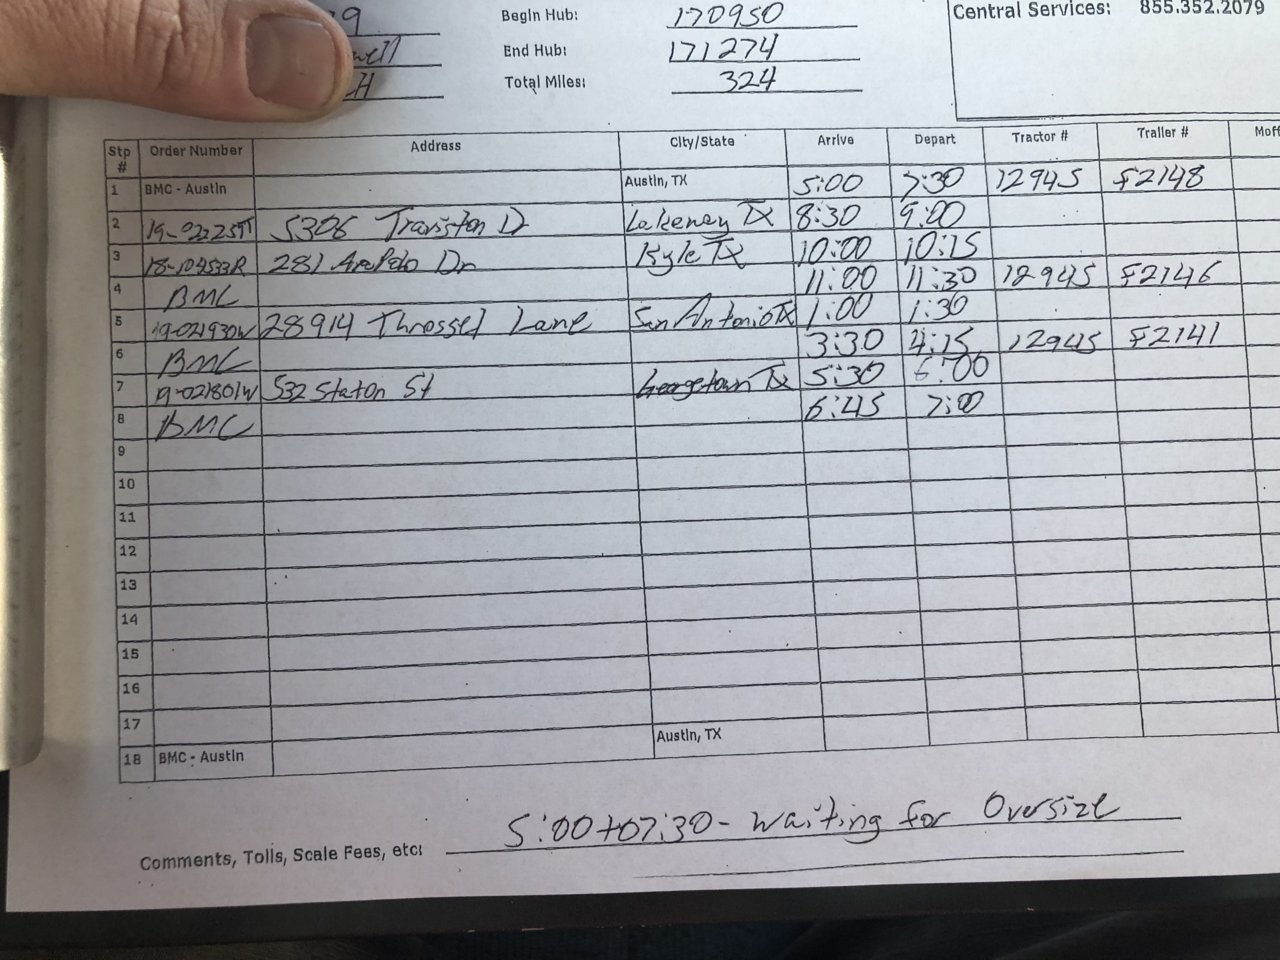 19 Begin Hub: 170950 Central Services: 855.352.2079
well End Hub: 171274
H Total Miles: 324
Stp # Order Number Address City/State Arrive Depart Tractor # Trailer # Moff
1 BMC - Austin Austin, TX 5:00 7:30 12945 F2148
2 5306 Dr Lakeway TX 8:30 9:00
3 281 Dr Kyle TX 10:00 10:15
4 BMC 11:00 11:30 12945 F2146
5 19-021930W 28914 Throssel Lane San Antonio TX 1:00 1:30
6 BMC 3:30 4:15 12945 F2141
7 19-021801W 532 Staton St Georgetown TX 5:30 6:00
8 BMC 6:45 7:00
9
10
11
12
13
14
15
16
17
18 BMC - Austin Austin, TX
Comments, Tolls, Scale Fees, etc: 5:00 to 7:30 - waiting for Oversize